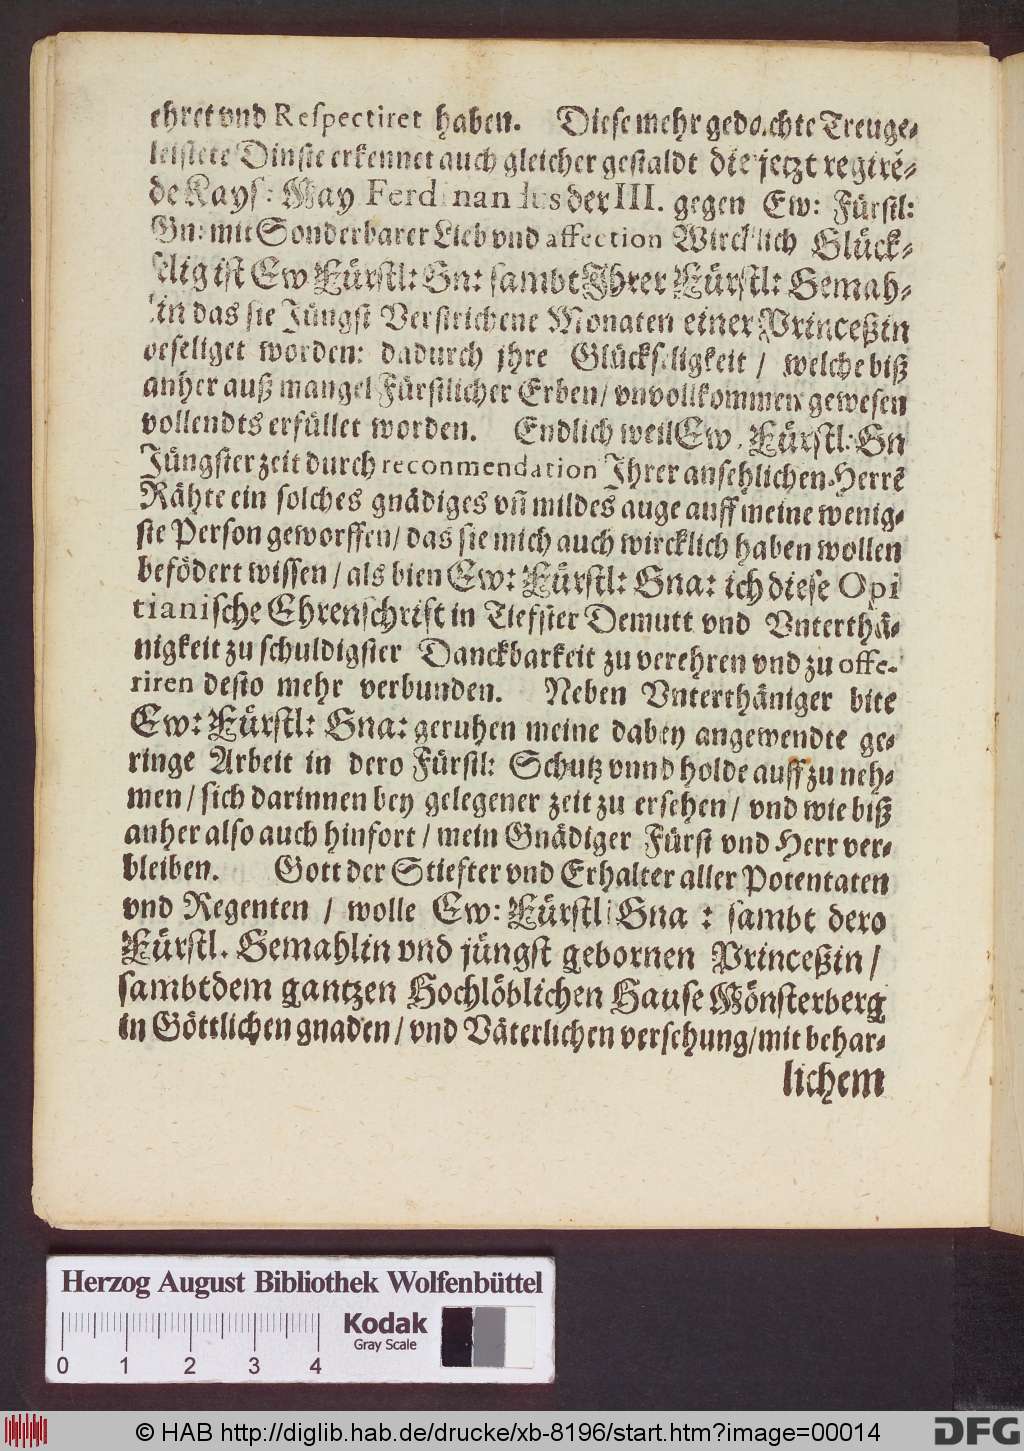 ehret vnd Respectiret haben. Diese mehr gedachte Treuge-
leistete Dinste erkennet auch gleicher gestaldt die jetzt regirē-
de Kays: May Ferdinandus der III. gegen Ew: Fürstl:
Gn: mit Sonderbarer Lieb vnd affection Wircklich Glück-
selig ist Ew Fürstl: Gn: sambt Ihrer Fürstl: Gemah-
lin das sie Jüngst Verstrichene Monaten einer Princeßin
beseliget worden: dadurch jhre Glückseligkeit / welche biß
anher auß mangel Fürstlicher Erben / vnvollkommen gewesen
vollendts erfüllet worden. Endlich weil Ew. Fürstl: Gn
Jüngster zeit durch reconmendation Ihrer ansehlichen Herrē
Rähte ein solches gnädiges vn̄ mildes auge auff meine wenig-
ste Person geworffen / das sie mich auch wircklich haben wollen
befödert wissen / als bien Ew: Fürstl: Gna: ich diese Opi
tianische Ehrenschrift in Tiefster Demutt vnd Vnterthä-
nigkeit zu schuldigster Danckbarkeit zu verehren vnd zu offe-
riren desto mehr verbunden. Neben Vnterthäniger bite
Ew: Fürstl: Gna: geruhen meine dabey angewendte ge-
ringe Arbeit in dero Fürstl: Schutz vnnd holde auff zu neh-
men / sich darinnen bey gelegener zeit zu ersehen / vnd wie biß
anher also auch hinfort / mein Gnädiger Fürst vnd Herr ver-
bleiben. Gott der Stiefter vnd Erhalter aller Potentaten
vnd Regenten / wolle Ew: Fürstl: Gna: sambt dero
Fürstl. Gemahlin vnd jüngst gebornen Princeßin /
sambt dem gantzen Hochlöblichen Hause Mönsterberg
in Göttlichen gnaden / vnd Väterlichen versehung / mit behar-
lichem
Herzog August Bibliothek Wolfenbüttel
Kodak
Gray Scale
0 1 2 3 4
© HAB http://diglib.hab.de/drucke/xb-8196/start.htm?image=00014
DFG